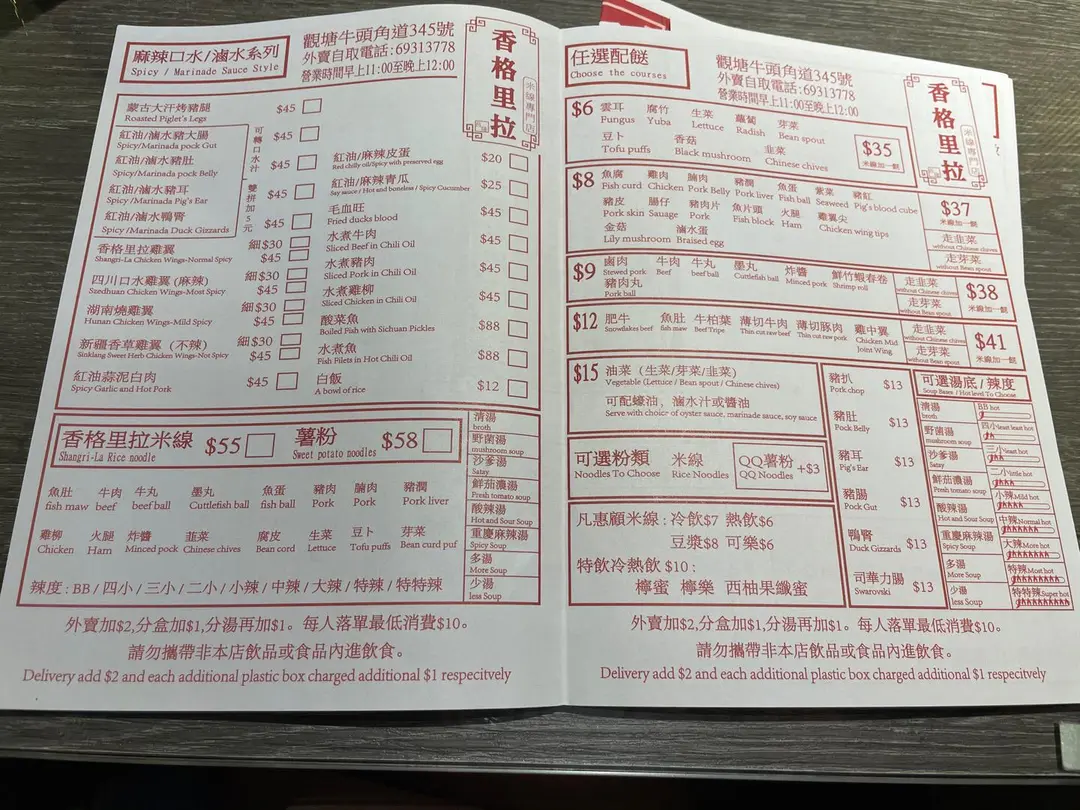 麻辣口水/滷水系列
Spicy / Marinade Sauce Style
觀塘牛頭角道345號
外賣自取電話:69313778
營業時間早上11:00至晚上12:00
香格里拉
米線專門店
蒙古大汗烤豬腿 $45
Roasted Piglet's Legs
紅油/滷水豬大腸 $45
Spicy/Marinada pock Gut
紅油/滷水豬肚 $45
Spicy/Marinada pock Belly
紅油/滷水豬耳 $45
Spicy/Marinada Pig's Ear
紅油/滷水鴨腎 $45
Spicy /Marinada Duck Gizzards
可轉口水汁
雙拼加5元
香格里拉雞翼 細$30
Shangri-La Chicken Wings-Normal Spicy $45
四川口水雞翼 (麻辣) 細$30
Szedhuan Chicken Wings-Most Spicy $45
湖南燒雞翼 細$30
Hunan Chicken Wings-Mild Spicy $45
新疆香草雞翼 (不辣) 細$30
Sinklang Sweet Herb Chicken Wings-Not Spicy $45
紅油蒜泥白肉 $45
Spicy Garlic and Hot Pork
紅油/麻辣皮蛋 $20
Red chilly oil/Spicy with preserved egg
紅油/麻辣青瓜 $25
Soy sauce / Hot and boneless / Spicy Cucumber
毛血旺 $45
Fried ducks blood
水煮牛肉 $45
Sliced Beef in Chili Oil
水煮豬肉 $45
Sliced Pork in Chili Oil
水煮雞柳 $45
Sliced Chicken in Chili Oil
酸菜魚 $88
Boiled Fish with Sichuan Pickles
水煮魚 $88
Fish Filets in Hot Chili Oil
白飯 $12
A bowl of rice
香格里拉米線 $55 薯粉 $58
Shangri-La Rice noodle Sweet potato noodles
魚肚 牛肉 牛丸 墨丸 魚蛋 豬肉 腩肉 豬膶
fish maw beef beef ball Cuttlefish ball Fish ball Pork Pork Pork liver
雞柳 火腿 炸醬 韮菜 腐皮 生菜 豆卜 芽菜
Chicken Ham Minced pock Chinese chives Bean cord Lettuce Tofu puffs Bean curd puf
辣度 : BB / 四小 / 三小 / 二小 / 小辣 / 中辣 / 大辣 / 特辣 / 特特辣
清湯
broth
野菌湯
mushroom soup
沙爹湯
Satay
鮮茄湯
Fresh tomato soup
酸辣湯
Hot and Sour Soup
重慶麻辣湯
Spicy Soup
多湯
More Soup
少湯
less Soup
外賣加$2,分盒加$1,分湯再加$1。每人落單最低消費$10。
請勿攜帶非本店飲品或食品內進飲食。
Delivery add $2 and each additional plastic box charged additional $1 respecitvely
任選配餸
Choose the courses
觀塘牛頭角道345號
外賣自取電話:69313778
營業時間早上11:00至晚上12:00
香格里拉
米線專門店
$6 雲耳 腐竹 生菜 蘿蔔 芽菜
Fungus Yuba Lettuce Radish Bean spout
豆卜 香菇 韮菜
Tofu puffs Black mushroom Chinese chives
$35
米線加一餸
$8 魚腐 雞肉 腩肉 豬膶 魚蛋 紫菜 豬紅
Fish curd Chicken Pork Belly Pork liver Fish ball Seaweed Pig's blood cube
豬皮 腸仔 豬肉片 魚片頭 火腿 雞翼尖
Pork skin Sauage Pork Fish block Ham Chicken wing tips
金菇 滷水蛋
Lily mushroom Braised egg
$37
米線加一餸
走韮菜
without Chinese chives
走芽菜
without Bean spout
$9 鹵肉 牛肉 牛丸 墨丸 炸醬 鮮竹蝦春卷
Stewed pork Beef beef ball Cuttlefish ball Minced pork Shrimp roll
豬肉丸
Pork ball
走韮菜
without Chinese chives
走芽菜
without Bean spout
$38
米線加一餸
$12 肥牛 魚肚 牛柏葉 薄切牛肉 薄切豚肉 雞中翼
Snowflakes beef fish maw BeefTripe Thin cut raw beef Thin cut raw pork Chicken Mid Joint Wing
走韮菜
without Chinese chives
走芽菜
without Bean spout
$41
米線加一餸
$15 油菜 (生菜/芽菜/韭菜)
Vegetable (Lettuce / Bean spout / Chinese chives)
可配蠔油, 滷水汁或醬油
Serve with choice of oyster sauce, marinade sauce, soy sauce
可選粉類 米線 QQ薯粉 +$3
Noodles To Choose Rice Noodles QQ Noodles
凡惠顧米線 : 冷飲$7 熱飲$6
豆漿$8 可樂$6
特飲冷熱飲 $10 :
檸蜜 檸樂 西柚果纖蜜
豬扒 $13
Pork chop
豬肚 $13
Pock Belly
豬耳 $13
Pig's Ear
豬腸 $13
Pock Gut
鴨腎 $13
Duck Gizzards
司華力腸 $13
Swarovski
可選湯底 / 辣度
Soup Bases / Hot level To Choose
清湯
broth
野菌湯
mushroom soup
沙爹湯
Satay
鮮茄湯
Fresh tomato soup
酸辣湯
Hot and Sour Soup
重慶麻辣湯
Spicy Soup
多湯
More Soup
少湯
less Soup
BB hot
四小least least hot
三小least hot
二小little hot
小辣Mild hot
中辣Normal hot
大辣More hot
特辣Most hot
特特辣Super hot
外賣加$2,分盒加$1,分湯再加$1。每人落單最低消費$10。
請勿攜帶非本店飲品或食品內進飲食。
Delivery add $2 and each additional plastic box charged additional $1 respecitvely